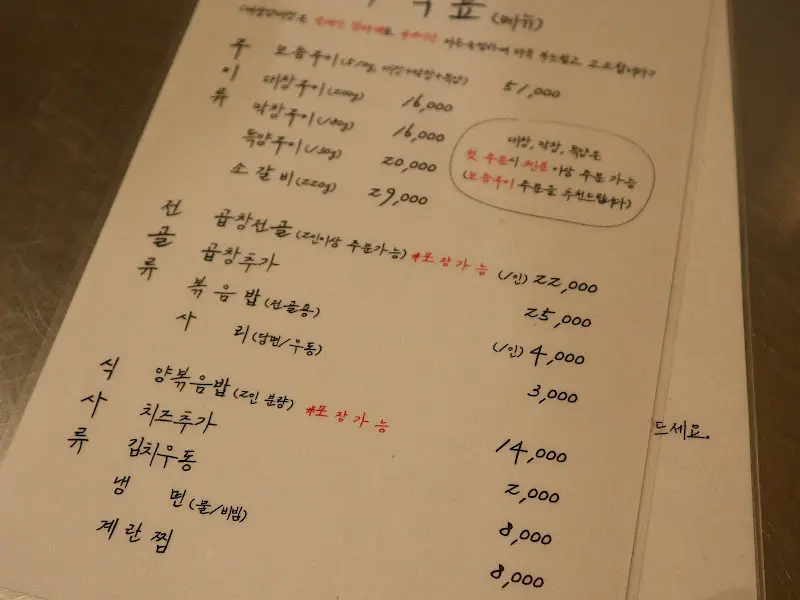 표 (메뉴)
더욱 부드럽고 고소합니다)
구이류
모듬구이(510g, 대창+막창+특양) 51,000
대창구이(200g) 16,000
막창구이(180g) 16,000
특양구이(130g) 20,000
소 갈 비(220g) 29,000
대창, 막창, 특양은
첫 주문시 2인분 이상 주문 가능
(모듬구이 주문을 추천드립니다)
전골류
곱창전골 (2인이상 주문가능) #포장가능 (1인) 22,000
곱창추가 25,000
볶음밥 (전골용) (1인) 4,000
사 리 (당면/우동) 3,000
식사류
양볶음밥 (2인 분량) #포장가능 14,000
치즈추가 2,000
김치우동 8,000
냉 면 (물/비빔) 8,000
계란찜
드세요.